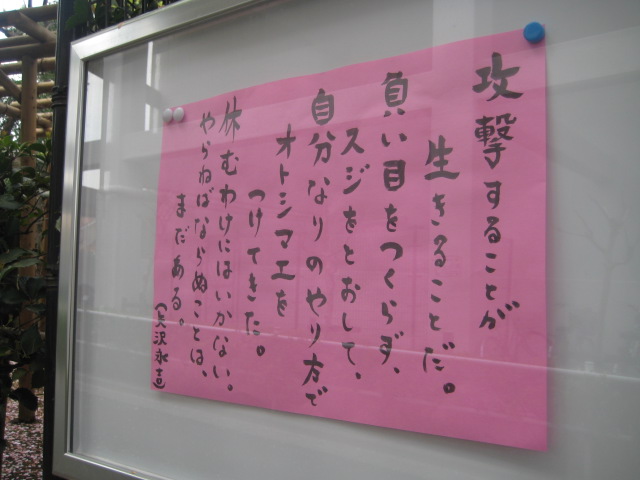 攻撃することが
生きることだ。
負い目をつくらず、
スジをとおして、
自分なりのやり方で
オトシマエを
つけてきた。
休むわけにはいかない。
やらねばならぬことは、
まだある。
(矢沢永吉)